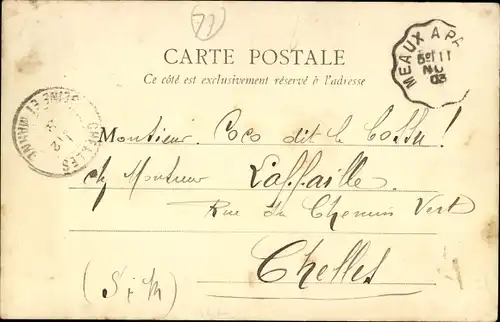 77
CARTE POSTALE
Ce côté est exclusivement réservé à l'adresse
MEAUX A
11
03
CHELLES SEINE ET MARNE
Monsieur Coco dit le Cossu!
chz Monsieur Laffaille.
Rue du Chemin Vert
Chelles
(S. & M)